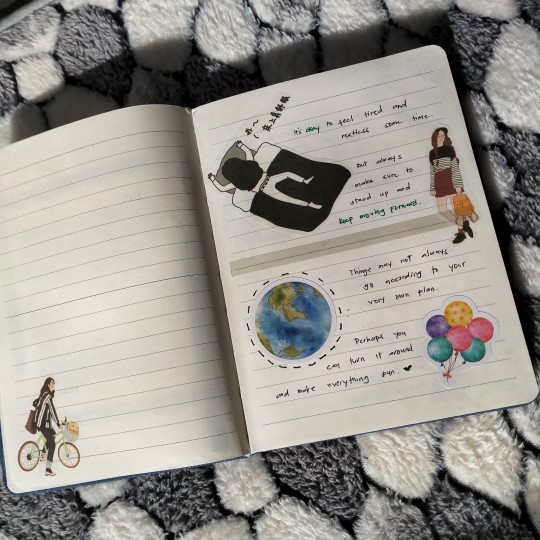 it's okay to feel tired and
restless some time.
But always
make sure to
stand up and
keep moving forward.
Things may not always
go according to your
very own plan.
Perhaps you
can turn it around
and make everything fun. ♥